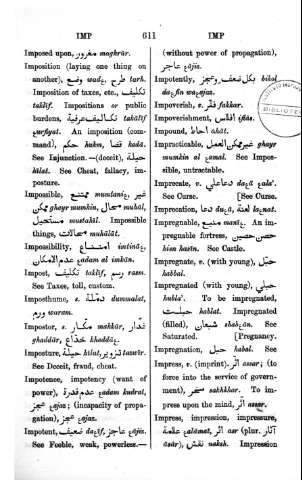 IMP 611 IMP
Imposed upon, مغرور maghrūr.
Imposition (laying one thing on
another), وضع wadẹ, طرح tarh.
Imposition of taxes, etc., تكليف
taklīf. Impositions or public
burdens, تكاليف عرفية takālīf
ẹurfīyat. An imposition (com-
mand), حكم hukm, قضا kadā.
See Injunction.—(deceit), حيلة
hīlat. See Cheat, fallacy, im-
posture.
Impossible, ممتنع mumtaniẹ, غير
ممكن ghayr mumkin, محال muhāl,
مستحيل mustahīl. Impossible
things, محالات muhālāt.
Impossibility, امتناع imtināẹ,
عدم الامكان ẹadam al imkān.
Impost, تكليف taklīf, رسم rasm.
See Taxes, toll, custom.
Imposthume, دملة s. dummalat,
ورم waram.
Impostor, مكار s. makkār, غدار
ghaddār, خداع khaddāẹ.
Imposture, حيلة hīlat, تزوير tazwīr.
See Deceit, fraud, cheat.
Impotence, impotency (want of
power), عدم قدرة ẹadam kudrat,
عجز ẹajz; (incapacity of propa-
gation), عجز ẹajz.
Impotent, ضعيف daẹīf, عاجز ẹājiz.
See Feeble, weak, powerless.—
(without power of propagation),
عاجز ẹājiz.
Impotently, بكل ضعف وعجز bikul
daẹfin waẹajaz.
Impoverish, فقر v. fakkar.
Impoverishment, افلاس iflās.
Impound, احاط ahāt.
Impracticable, غير ممكن العمل ghayr
mumkin al ẹamal. See Impos-
sible, untractable.
Imprecate, دعا على v. daẹā ẹala'.
See Curse. [See Curse.
Imprecation, دعا duẹā, لعنة laẹnat.
Impregnable, منيع manīẹ. An im-
pregnable fortress, حصن حصين
hisn hasīn. See Castle.
Impregnate, (with young), حبل v.
habbal.
Impregnated (with young), حبلى
hubla'. To be impregnated,
حبلت hablat. Impregnated
(filled), شبعان shabẹān. See
Saturated. [Pregnancy.
Impregnation, حبل habal. See
Impress, (imprint), اثر assar; (to
force into the service of govern-
ment), سخر sakhkhar. To im-
press upon the mind, اثر assar.
Impress, impression, impressure,
علامة ẹalāmat, اثر asr (plur. آثار
āsār), نقش naksh. Impression